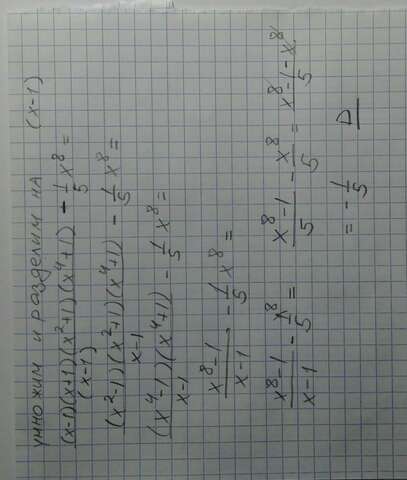 умножим и разделим на (x-1)
(x-1)(x+1)(x²+1)(x⁴+1)/(x-1) - 1/5 x⁸ =
(x²-1)(x²+1)(x⁴+1)/x-1 - 1/5 x⁸ =
(x⁴-1)(x⁴+1)/x-1 - 1/5 x⁸ =
x⁸-1/x-1 - 1/5 x⁸ =
x⁸-1/x-1 - x⁸/5 = x⁸-1/5 - x⁸/5 = x⁸-1-x⁸/5
= -1/5 D